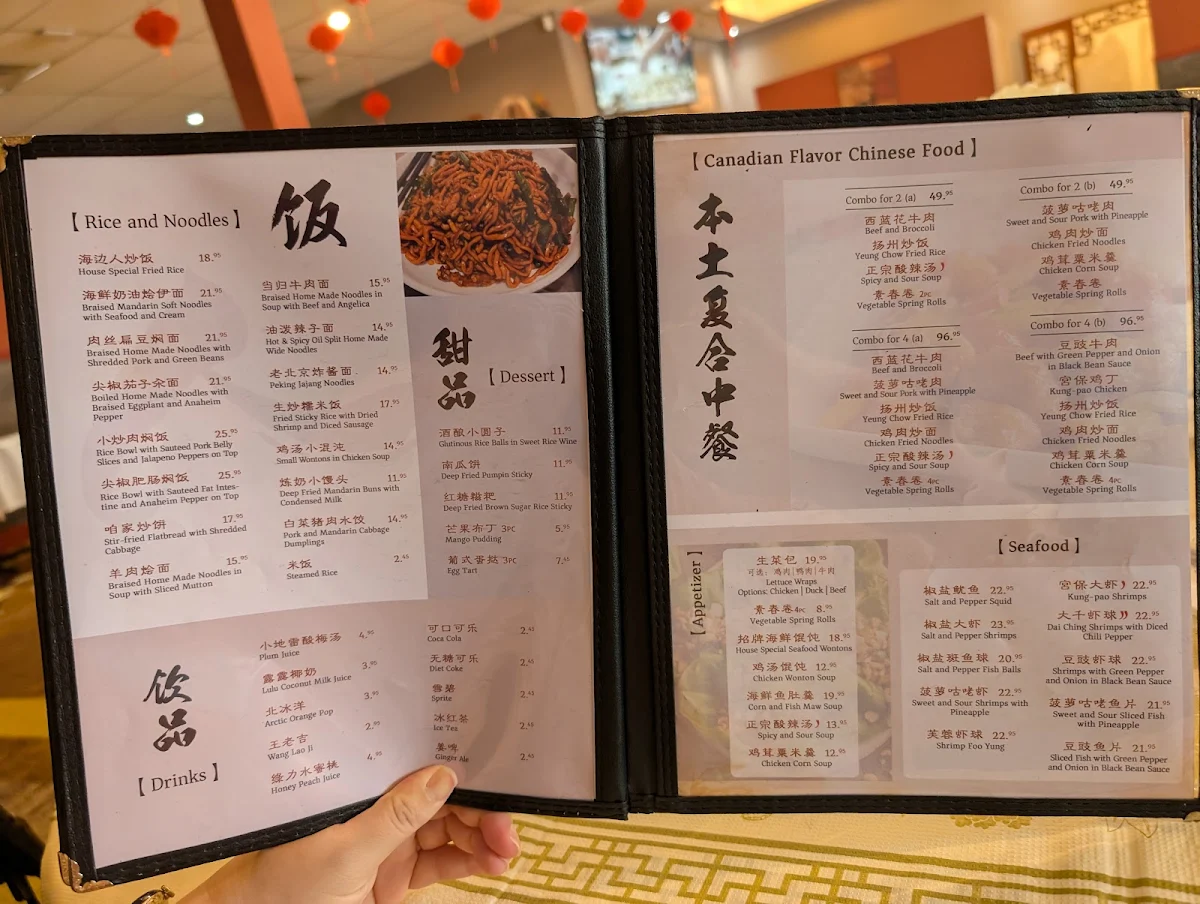 【 Rice and Noodles 】
饭
海边人炒饭 18.95
House Special Fried Rice
海鲜奶油烩伊面 21.95
Braised Mandarin Soft Noodles
with Seafood and Cream
肉丝扁豆焖面 21.95
Braised Home Made Noodles with
Shredded Pork and Green Beans
尖椒茄子杂面 21.95
Boiled Home Made Noodles with
Braised Eggplant and Anaheim
Pepper
小炒肉焖饭 25.95
Rice Bowl with Sauteed Pork Belly
Slices and Jalapeno Peppers on Top
尖椒肥肠焖饭 25.95
Rice Bowl with Sauteed Fat Intes-
tine and Anaheim Pepper on Top
咱家炒饼 17.95
Stir-fried Flatbread with Shredded
Cabbage
羊肉烩面 15.95
Braised Home Made Noodles in
Soup with Sliced Mutton
当归牛肉面 15.95
Braised Home Made Noodles in
Soup with Beef and Angelica
油泼辣子面 14.95
Hot & Spicy Oil Split Home Made
Wide Noodles
老北京炸酱面 14.95
Peking Jajang Noodles
生炒糯米饭 17.95
Fried Sticky Rice with Dried
Shrimp and Diced Sausage
鸡汤小混沌 14.95
Small Wontons in Chicken Soup
炼奶小馒头 11.95
Deep Fried Mandarin Buns with
Condensed Milk
白菜猪肉水饺 14.95
Pork and Mandarin Cabbage
Dumplings
米饭 2.45
Steamed Rice
甜品
【 Dessert 】
酒酿小圆子 11.95
Glutinous Rice Balls in Sweet Rice Wine
南瓜饼 11.95
Deep Fried Pumpin Sticky
红糖糍粑 11.95
Deep Fried Brown Sugar Rice Sticky
芒果布丁 3PC 5.95
Mango Pudding
葡式蛋挞 3PC 7.45
Egg Tart
饮品
【 Drinks 】
小地雷酸梅汤 4.95
Plum Juice
露露椰奶 3.95
Lulu Coconut Milk Juice
北冰洋 3.95
Arctic Orange Pop
王老吉 2.95
Wang Lao Ji
绿力水蜜桃 4.95
Honey Peach Juice
可口可乐 2.45
Coca Cola
无糖可乐 2.45
Diet Coke
雪碧 2.45
Sprite
冰红茶 2.45
Ice Tea
姜啤 2.45
Ginger Ale
【 Canadian Flavor Chinese Food 】
本土复合中餐
Combo for 2 (a) 49.95
西蓝花牛肉
Beef and Broccoli
扬州炒饭
Yeung Chow Fried Rice
正宗酸辣汤
Spicy and Sour Soup
素春卷 2PC
Vegetable Spring Rolls
Combo for 2 (b) 49.95
菠萝咕咾肉
Sweet and Sour Pork with Pineapple
鸡肉炒面
Chicken Fried Noodles
鸡茸粟米羹
Chicken Corn Soup
素春卷
Vegetable Spring Rolls
Combo for 4 (a) 96.95
西蓝花牛肉
Beef and Broccoli
菠萝咕咾肉
Sweet and Sour Pork with Pineapple
扬州炒饭
Yeung Chow Fried Rice
鸡肉炒面
Chicken Fried Noodles
正宗酸辣汤
Spicy and Sour Soup
素春卷 4PC
Vegetable Spring Rolls
Combo for 4 (b) 96.95
豆豉牛肉
Beef with Green Pepper and Onion
in Black Bean Sauce
宫保鸡丁
Kung-pao Chicken
扬州炒饭
Yeung Chow Fried Rice
鸡肉炒面
Chicken Fried Noodles
鸡茸粟米羹
Chicken Corn Soup
素春卷 4PC
Vegetable Spring Rolls
【 Appetizer 】
生菜包 19.95
可选：鸡肉|鸭肉|牛肉
Lettuce Wraps
Options: Chicken | Duck | Beef
素春卷4PC 8.95
Vegetable Spring Rolls
招牌海鲜馄饨 18.95
House Special Seafood Wontons
鸡汤馄饨 12.95
Chicken Wonton Soup
海鲜鱼肚羹 19.95
Corn and Fish Maw Soup
正宗酸辣汤 13.95
Spicy and Sour Soup
鸡茸粟米羹 12.95
Chicken Corn Soup
【 Seafood 】
椒盐鱿鱼 22.95
Salt and Pepper Squid
椒盐大虾 23.95
Salt and Pepper Shrimps
椒盐斑鱼球 20.95
Salt and Pepper Fish Balls
菠萝咕咾虾 22.95
Sweet and Sour Shrimps with
Pineapple
芙蓉虾球 22.95
Shrimp Foo Yung
宫保大虾 22.95
Kung-pao Shrimps
大千虾球 22.95
Dai Ching Shrimps with Diced
Chilli Pepper
豆豉虾球 22.95
Shrimps with Green Pepper
and Onion in Black Bean Sauce
菠萝咕咾鱼片 21.95
Sweet and Sour Sliced Fish
with Pineapple
豆豉鱼片 21.95
Sliced Fish with Green Pepper
and Onion in Black Bean Sauce